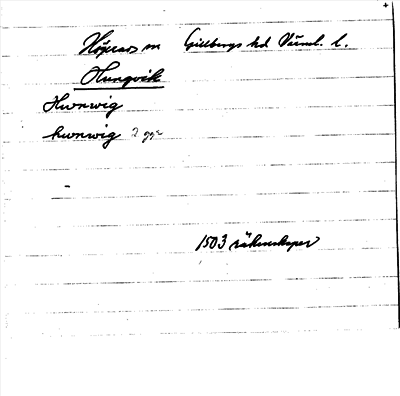 Högerud sn Gillbergs hd Värml. l.
Hungvik
Hwnwig
hwnwig 2 ggr
1503 räkenskaper